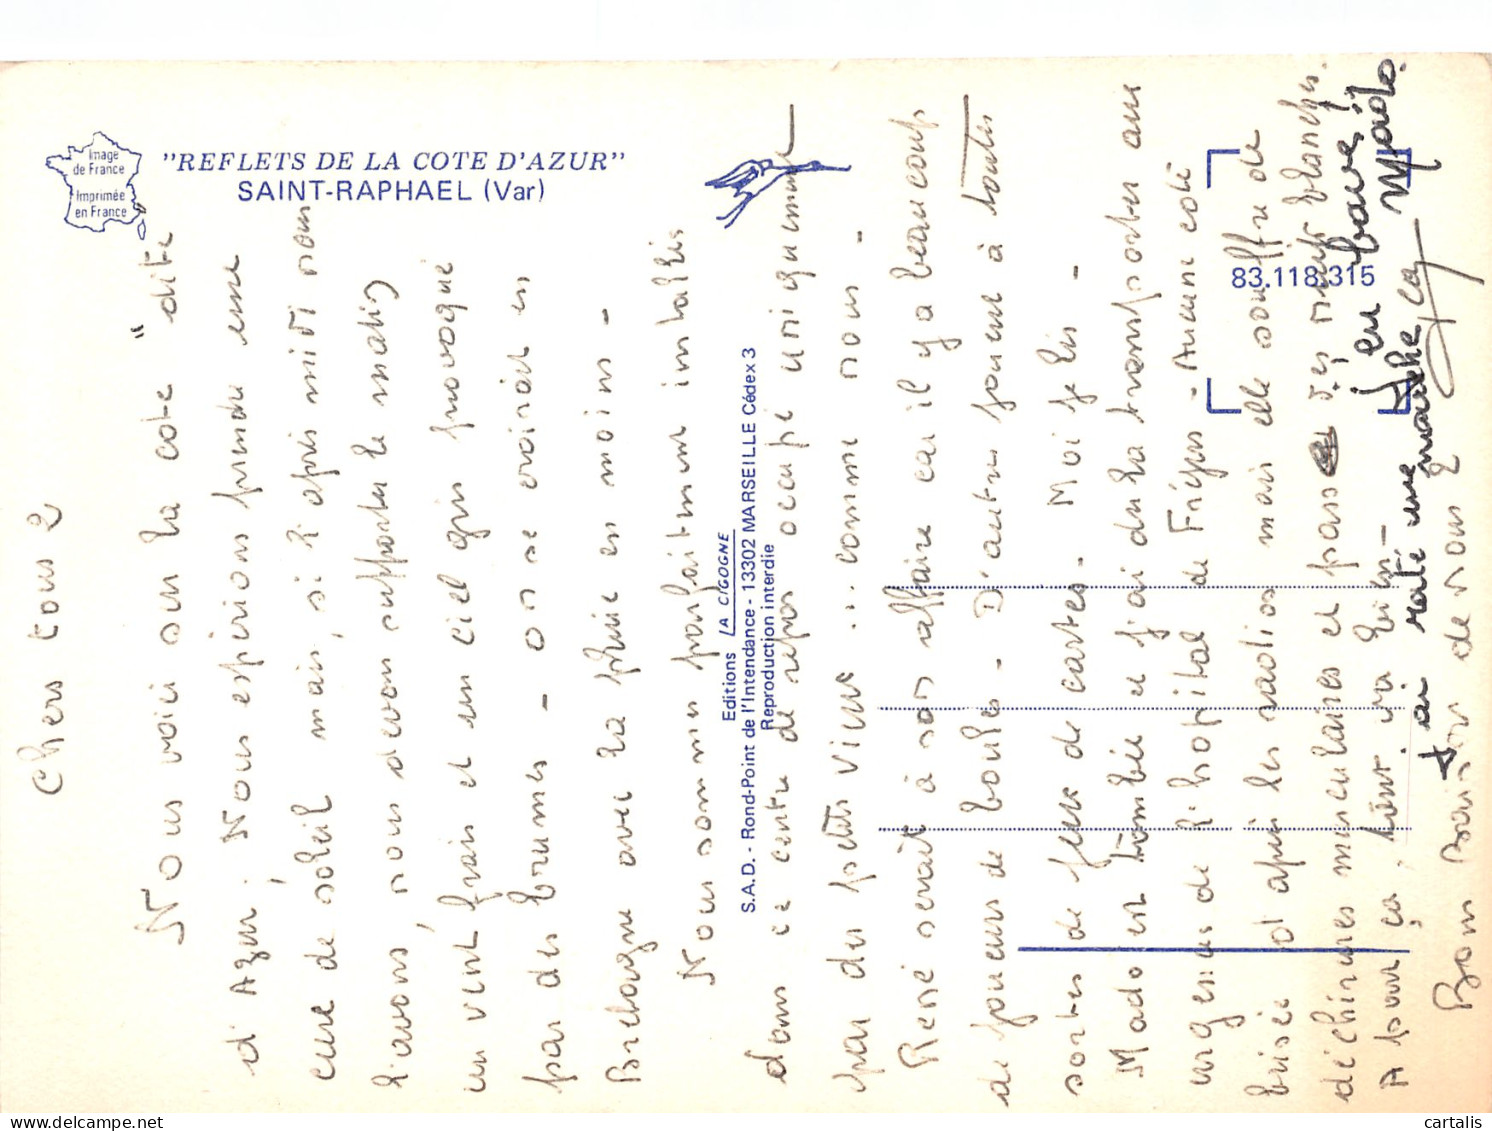 Image
de France
Imprimée
en France
"REFLETS DE LA COTE D'AZUR"
SAINT-RAPHAEL (Var)
83.118.315
Editions LA CIGOGNE
S.A.D. - Rond-Point de l'Intendance - 13302 MARSEILLE Cédex 3
Reproduction interdie
Chers tous 2
Nous voici sur la cote "dite
d'Azur. Nous espérions prendre une
cure de soleil mais, si l'après midi nous
l'avons, nous devons supporter le matin
un vent frais et un ciel gris provoqué
par des brumes - on se croirait en
Bretagne avec la pluie en moins -
Nous sommes parfaitement installés
dans ce centre de repos occupé uniquement
par des petits vieux ... comme nous -
René serait à son affaire car il y a beaucoup
de joueurs de boules - D'autres jouent à toutes
sortes de jeux de cartes - Moi je lis -
Mado est tombée et j'ai du la transporter aux
urgences de l'hopital de Fréjus - Aucune coté
brisée d'après les radios mais elle souffre de
déchirures musculaires et passe des nuits blanches.
A part ça, tout va bien -
Bons baisers de nous 2
J'ai raté une marche
en bave!
Mado.